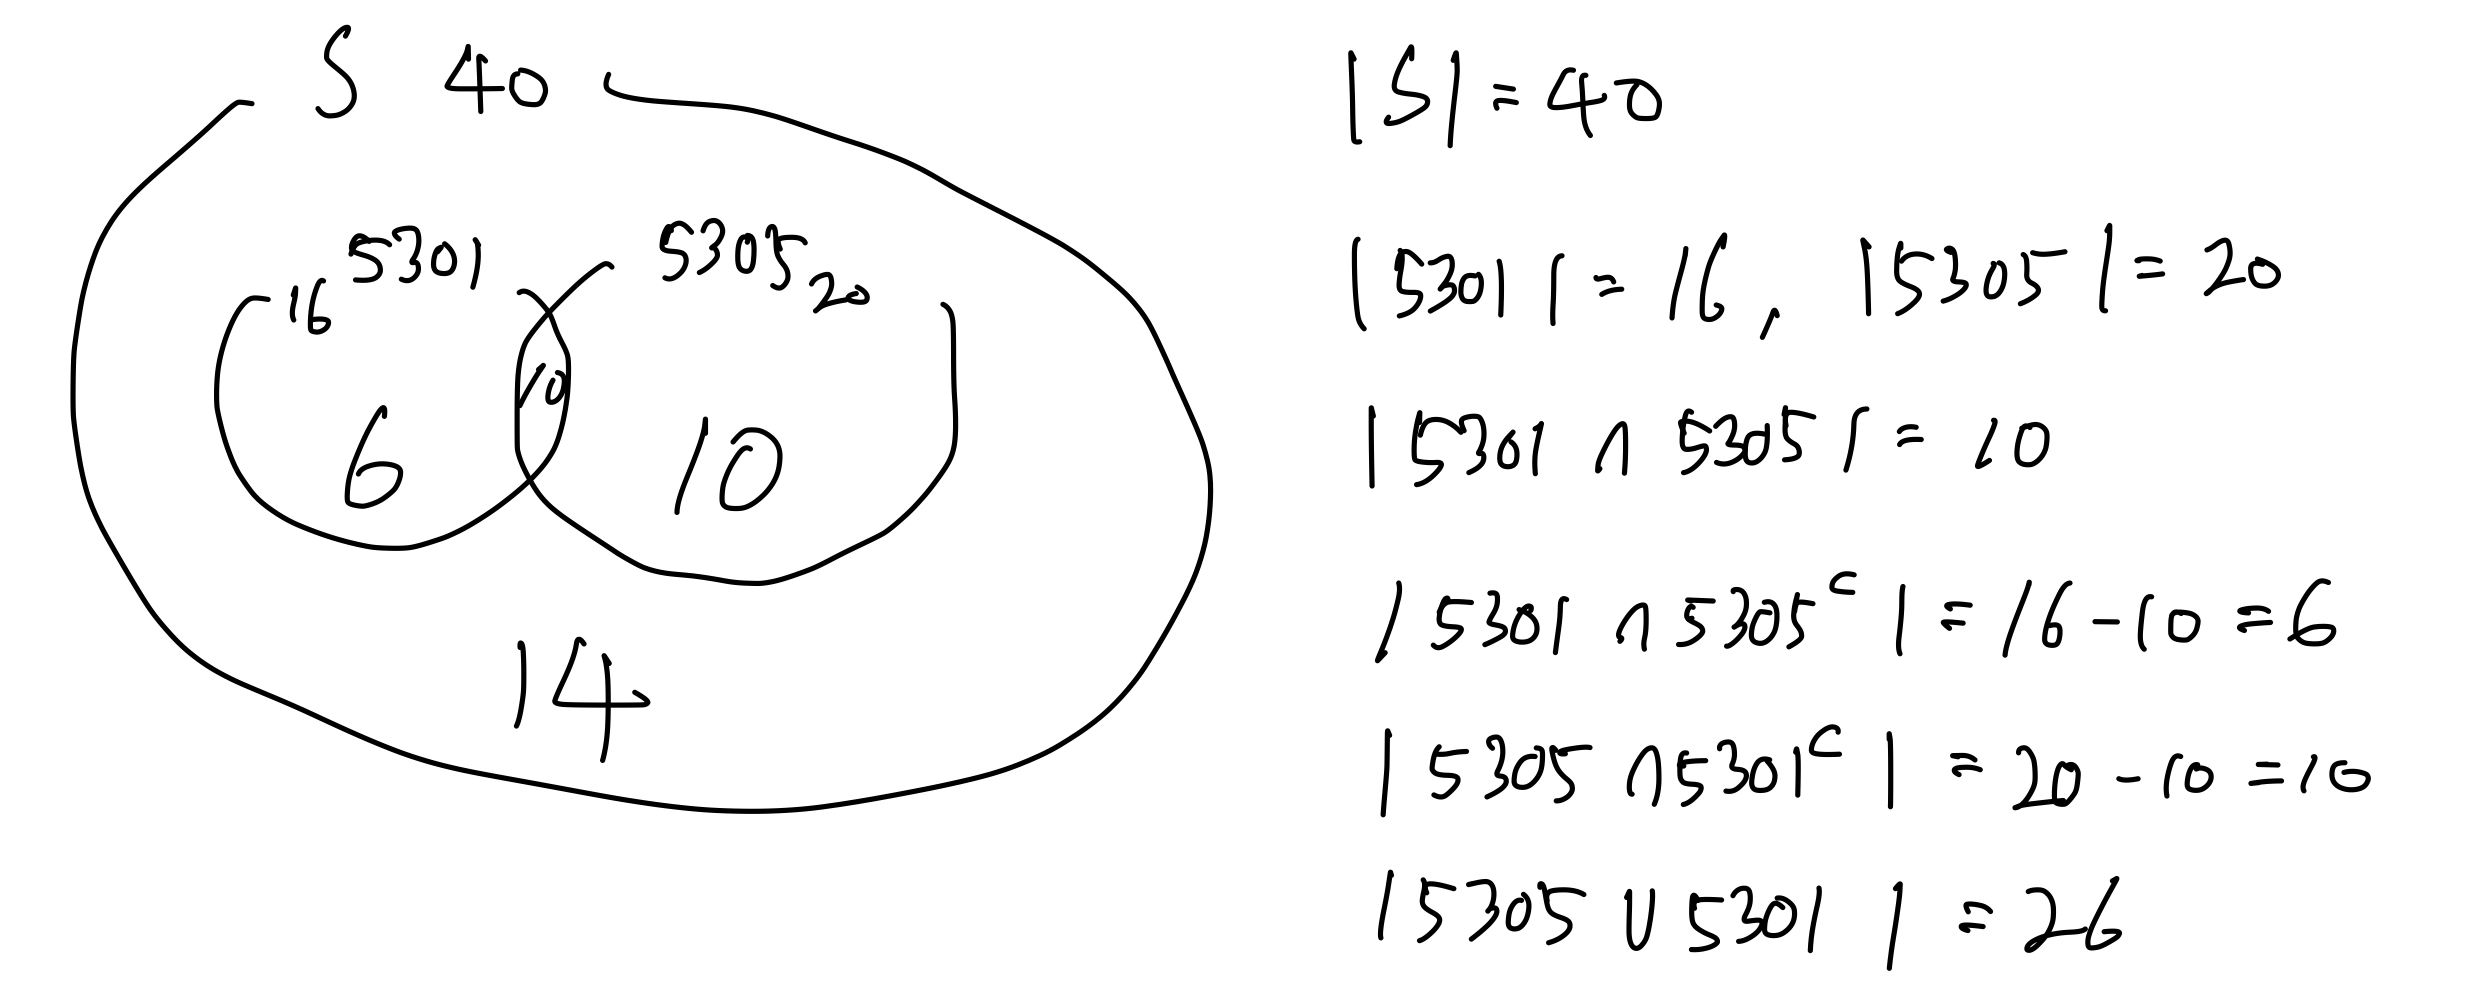 S 40
5301
5305
16
20
6
10
10
14
|S| = 40
|5301| = 16, |5305| = 20
|5301 ∩ 5305| = 10
|5301 ∩ 5305ᶜ| = 16 - 10 = 6
|5305 ∩ 5301ᶜ| = 20 - 10 = 10
|5305 ∪ 5301| = 26